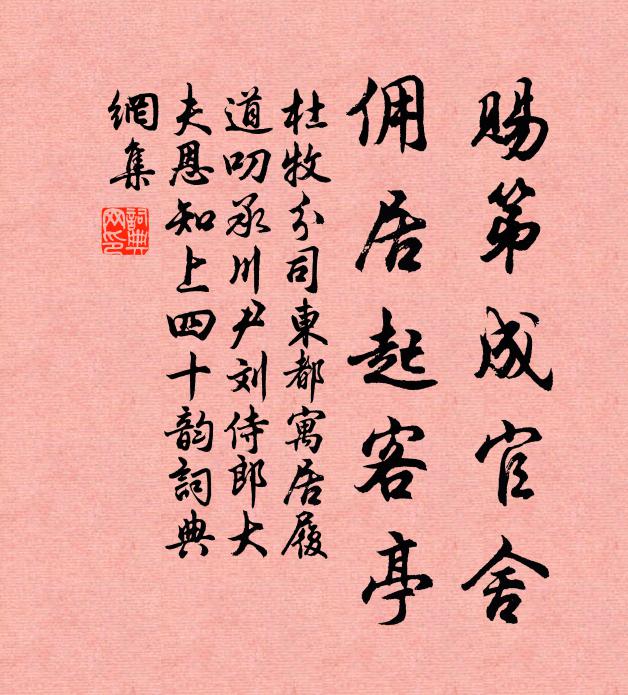 賜第成官舍
傭居起客亭
杜牧分司東都寓居履
道叨承川尹刘侍郎大
夫恩知上四十韵詞典
網集
詞典網印